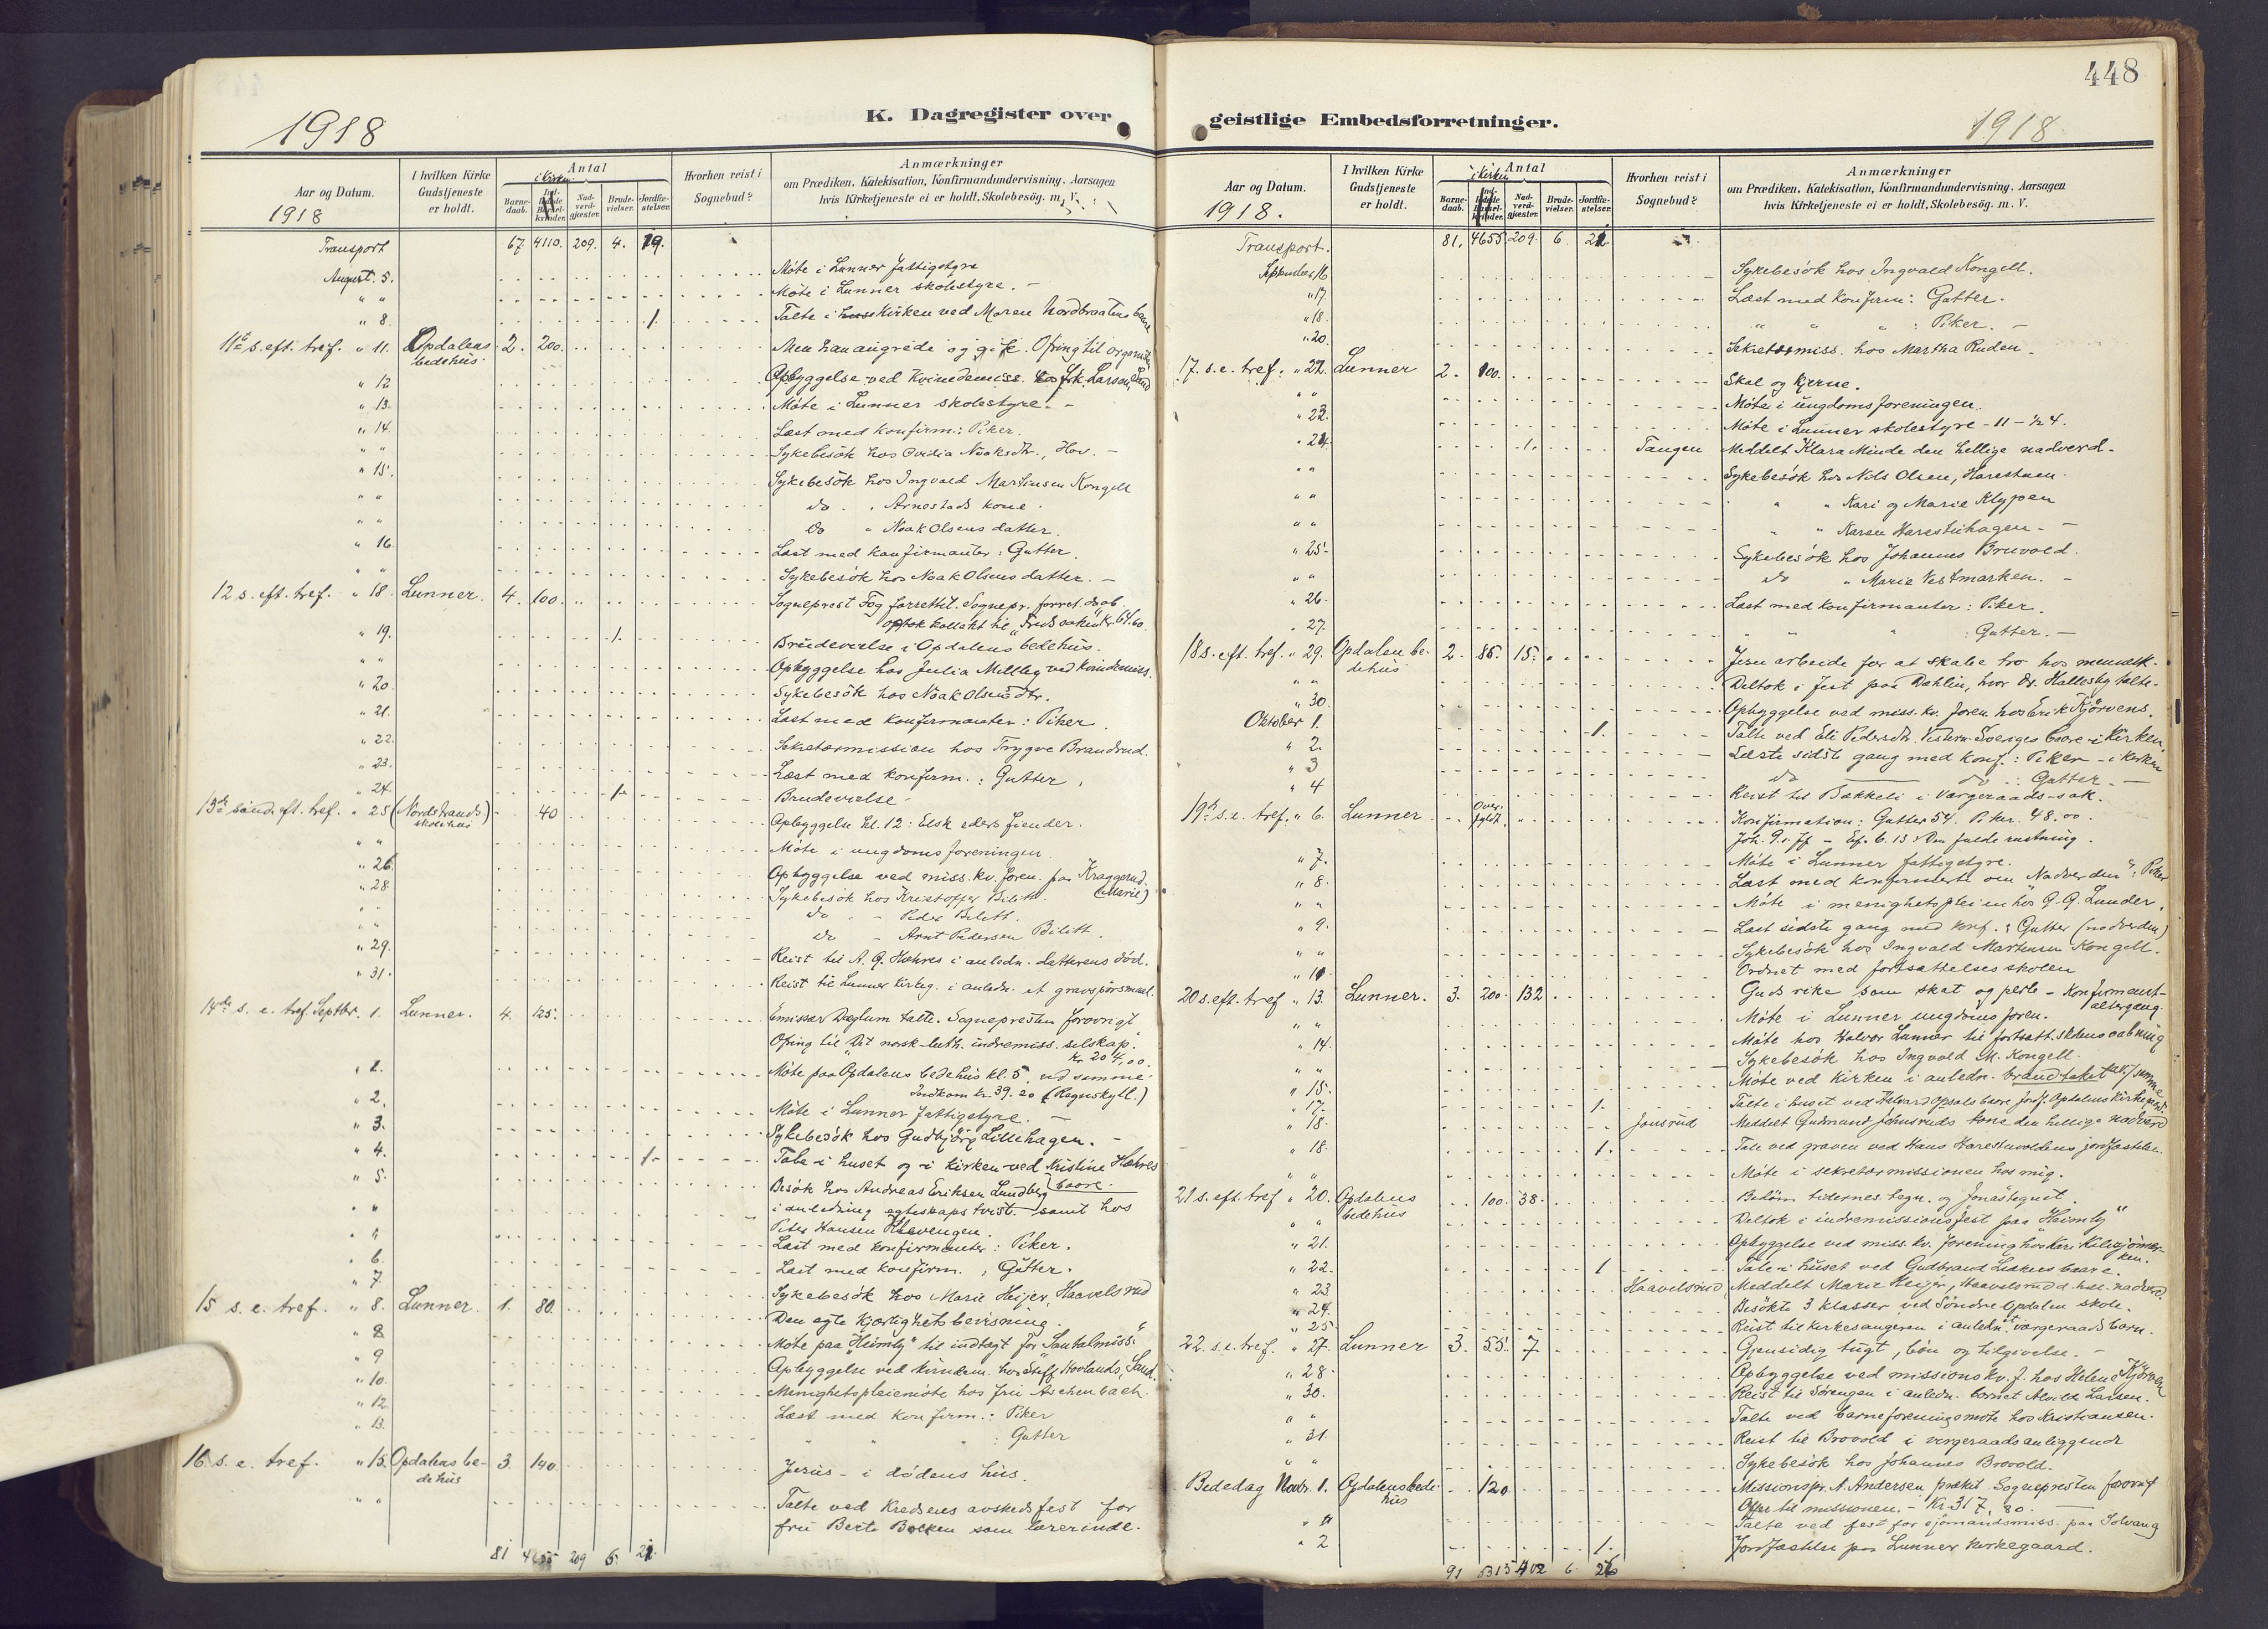 448
1918
K. Dagregister over
geistlige Embedsforretninger.
1918
Aar og Datum.
1918
I hvilken Kirke Gudstjeneste er holdt.
Antal
i kirken
Barnedaab.
Nadverdgjæster.
Brudevielser.
Jordfæstelser.
Hvorhen reist i Sognebud?
Anmærkninger
om Prædiken, Katekisation, Konfirmandundervisning, Aarsagen
hvis Kirketjeneste ei er holdt, Skolebesög. m. V.
Transport 67. 4110. 209. 4. 19.
August. 5. Möte i Lunner fattigstyre
" " Möte i Lunner skolestyre. -
" 8. 1. Talte i Kirken ved Maren Nordbraatens baare
11te s. eft. tref. " 11. Opdalens bedehus. 2. 200. Men han angrede og gik. Ofring til
" 12 Opbyggelse ved Kvindemiss. hos frk. Larsen, Sand
" 13. Möte i Lunner skolestyre. -
" 14. Læst med konfirm.: Piker.
" " Sykebesök hos Ovidia Noaksdtr., Hov. -
" 15. Sykebesök hos Ingvald Martinsen Kongell
" " do. " Arnestads kone.
" " do " Noak Olsens datter.
" 16. Læst med konfirmanter: Gutter.
" " Sykebesök hos Noak Olsens datter. -
12 s. eft. tref. " 18. Lunner. 4. 100. Sogneprest Fog forrettet. Sognepr. forret. daab.
optok kollekt til kr. 64.60.
" 19. 1. Brudevielse i Opdalens bedehus.
" " Opbyggelse hos Julia Melby ved kvindemiss.
" 20. Sykebesök hos Noak Olsens dtr.
" 21. Læst med konfirmanter: Piker.
" 22. Sekretærmission hos Trygve Brandrud.
" 23. Læst med konfirm.: Gutter.
" 24. 1. Brudevielse.
13de sönd. eft. tref. " 25 (Nordstrands skolehus) 40 Opbyggelse kl. 12: Elsk eders fiender.
" " Möte i ungdomsforeningen.
" 26. Opbyggelse ved miss. kv. foren. paa Kraggerud. (Marie)
" 28. Sykebesök hos Kristoffer Bilitt.
" " do " - Peder Bilitt.
" " do - Arnt Pedersen Bilitt.
" 29. Reist til A. G. Hæhres i anledn. datterens död.
" 31. Reist til Lunner kirkeg. i anledn. et gravspörsmaal.
14de s. e. tref. Septbr. 1. Lunner. 4. 125. Emissær Dæhlum talte. Sognepresten forövrigt
Ofring til "Det norsk-luth. indremiss. selskap."
kr 204,00.
" 1. Möte paa Opdalens bedehus kl. 5, ved samme.
Indkom kr. 39.20 (Regnskyll.)
" 2. Möte i Lunner fattigstyre.
" 3. Sykebesök hos Gudbjörg Lillehagen. -
" 4. 1. Tale i huset og i kirken ved Kristine Hæhres baare.
" 5. Besök hos Andreas Eriksen Lundberg
" " i anledning egteskapstvist. samt hos
Peter Hansen
" " Læst med konfirmanter: Piker.
" 6. Læst med konfirm., Gutter.
" 7. Sykebesök hos Marie Heijer, Haavelsrud
15 s. e. tref. " 8. Lunner. 1. 80. Den egte kjærlighets bevisning.
" 8 Möte paa "Heimly" til indtægt for Santalmiss.
" 9 Opbyggelse ved kvindem. hos Steff. Hovlands, Sand.
" 10. Menighetspleiemöte hos fru Aschenbach.
" 12 Læst med konfirm.: Piker
" 13. " " " : Gutter
16. s. e. tref. " 15. Opdalens bedehus 3. 140. Jesus - i dödens hus.
" " Talte ved Kredsens avskedsfest for
fru Berte Bakken som lærerinde.
81 4655 209 6. 21.
Aar og Datum.
1918.
I hvilken Kirke Gudstjeneste er holdt.
i kirken
Antal
Barnedaab.
Nadverdgjæster.
Brudevielser.
Jordfæstelser.
Hvorhen reist i Sognebud?
Anmærkninger
om Prædiken, Katekisation, Konfirmandundervisning, Aarsagen
hvis Kirketjeneste ei er holdt, Skolebesög. m. V.
Transport. 81. 4655 209. 6. 21.
September 16 Sykebesök hos Ingvald Kongell.
" 17. Læst med konfirm: Gutter.
" 18. " " " : Piker. -
" 20. Sekretærmiss. hos Martha Ruden.
17. s. e. tref. " 22. Lunner 2. 100. Skal og kjerne.
" " Möte i ungdomsforeningen.
" 23. Möte i Lunner skolestyre - 11 - ½ 4.
" 24. 1. Tangen Meddelt Klara Minde den hellige nadverd.
" " Sykebesök hos Nils Olsen, Harestuen.
" " " " Kari og Marie Klypen
" " " Karen Harestuhagen. -
" 25. Sykebesök hos Johannes Bruvold.
" " do " Marie Vestmarken. -
" 26. Læst med konfirmanter: Piker.
" 27. " " " : Gutter. -
18 s. eft. tref. " 29. Opdalen bedehus 2. 85. 15. Jesu arbeide for at skabe tro hos mennesk.
" " Deltok i fest paa Dæhlin, hvor Dr. Hallesby talte.
" 30. Opbyggelse ved miss. kv. foren. hos Erik Kjörvens.
Oktober 1. 1. Talte ved Eli Pedersdtr. baare i kirken.
" 2. Læste sidste gang med konf.: Piker - i kirken
" 3 do do : Gutter -
" 4 Reist til Bækkeli i Værgeraads-sak.
19de s. e. tref. " 6. Lunner Overfyldt. Konfirmation: Gutter 54. Piker. 48.00.
Joh. 9. ff - Ef. 6. 13: Den fulde rustning.
" 7. Möte i Lunner fattigstyre.
" 8. Læst med konfirmerte om "Nadverden": Piker
" " Möte i menighetspleien hos G. G. Lunder.
" 9. Læst sidste gang med konf.: Gutter (nadverden)
" " Sykebesök hos Ingvald Martinsen Kongell.
" 10 Ordnet med fortsættelsesskolen
20 s. eft. tref. " 13. Lunner. 3. 200. 132 Guds rike som skat og perle - Konfirmantaltergang.
" " Möte i Lunner ungdomsforen.
" 14. Möte hos Halvor Lunner til fortsett. skolens aabning
" " Sykebesök hos Ingvald M. Kongell.
" 15. Möte ved kirken i anledn. brandtakst av samme
" 17. 1. Talte i huset ved Halvard Opsals baare
" 18. Jonsrud Meddelt Gudmund Johnsruds kone den hellige nadverd
" 18. 1. Tale ved graven ved Hans Harestuvoldens jordfæstelse.
" " Möte i sekretærmissionen hos mig.
21 s. eft. tref. " 20. Opdalens bedehus 100. 38. Bedöm tidernes tegn. og Jonastegnet.
" " Deltok i indremissionsfest paa "Heimly"
" 21. Opbyggelse ved miss. kv. forening hos Kari
" 22. 1 Tale i huset ved Gudbrand baare.
" 23. Haavelsrud Meddelt Marie Heijer, Haavelsrud d. hel. nadverd.
" 24. Besökte 3 klasser ved Söndre Opdalen skole.
" 25 Reist til kirkesangeren i anledn. værgeraads barn.
22. s. e. tref. " 27. Lunner 3. 55. 7 Gjensidig tugt, bön og tilgivelse. -
" 28. Opbyggelse ved missionskv. f. hos Helene Kjörven
" 30. Reist til Sörengen i anledn. barnet Alvilde Larsen.
" " Talte ved barneforeningsmöte hos Kristiansen.
" 31. Reist til Brovold i vergeraadsanliggende
" " Sykebesök hos Johannes Brovold.
Bededag Novbr. 1. Opdalens bedehus 120. Missionspr. A. Andersen præket. Sognepresten forövrigt
Offer til missionen. - Kr 317,80.
" " Talte ved fest for sjömandsmiss. paa Solvang
" 2 1. Jordfæstelse paa Lunner kirkegaard.
91 5315 402 6. 26